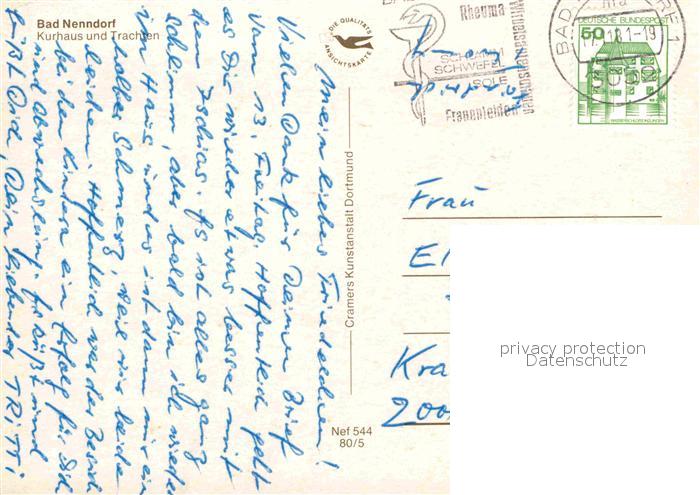 Bad Nenndorf
Kurhaus und Trachten
DIE QUALITÄTS
ANSICHTSKARTE
Rheuma
Wirbelsäulenschäden
SCHLAMM
SCHWEFEL
SOLE
Frauenleiden
BAD
1
81-19
DEUTSCHE BUNDESPOST
50
WASSERSCHLOSS INZLINGEN
Mein liebes Friedelchen!
Vielen Dank für Deinen Brief
vom 13. Freitag. Hoffentlich geht
es Dir wieder etwas besser mit
dem Ischias. Es ist alles ganz
schön, aber bald bin ich wieder
im Haus und es ist dann nur ein
halber Schmerz, weil wir beide
leiden. Hoffentlich war der Besuch
bei den Kindern ein Erfolg für Dich
und Abwechslung. Es grüßt und
küßt Dich, Dein liebender TRITTI
Cramers Kunstanstalt Dortmund
Nef 544
80/5
Frau
El
Kra
200
privacy protection
Datenschutz